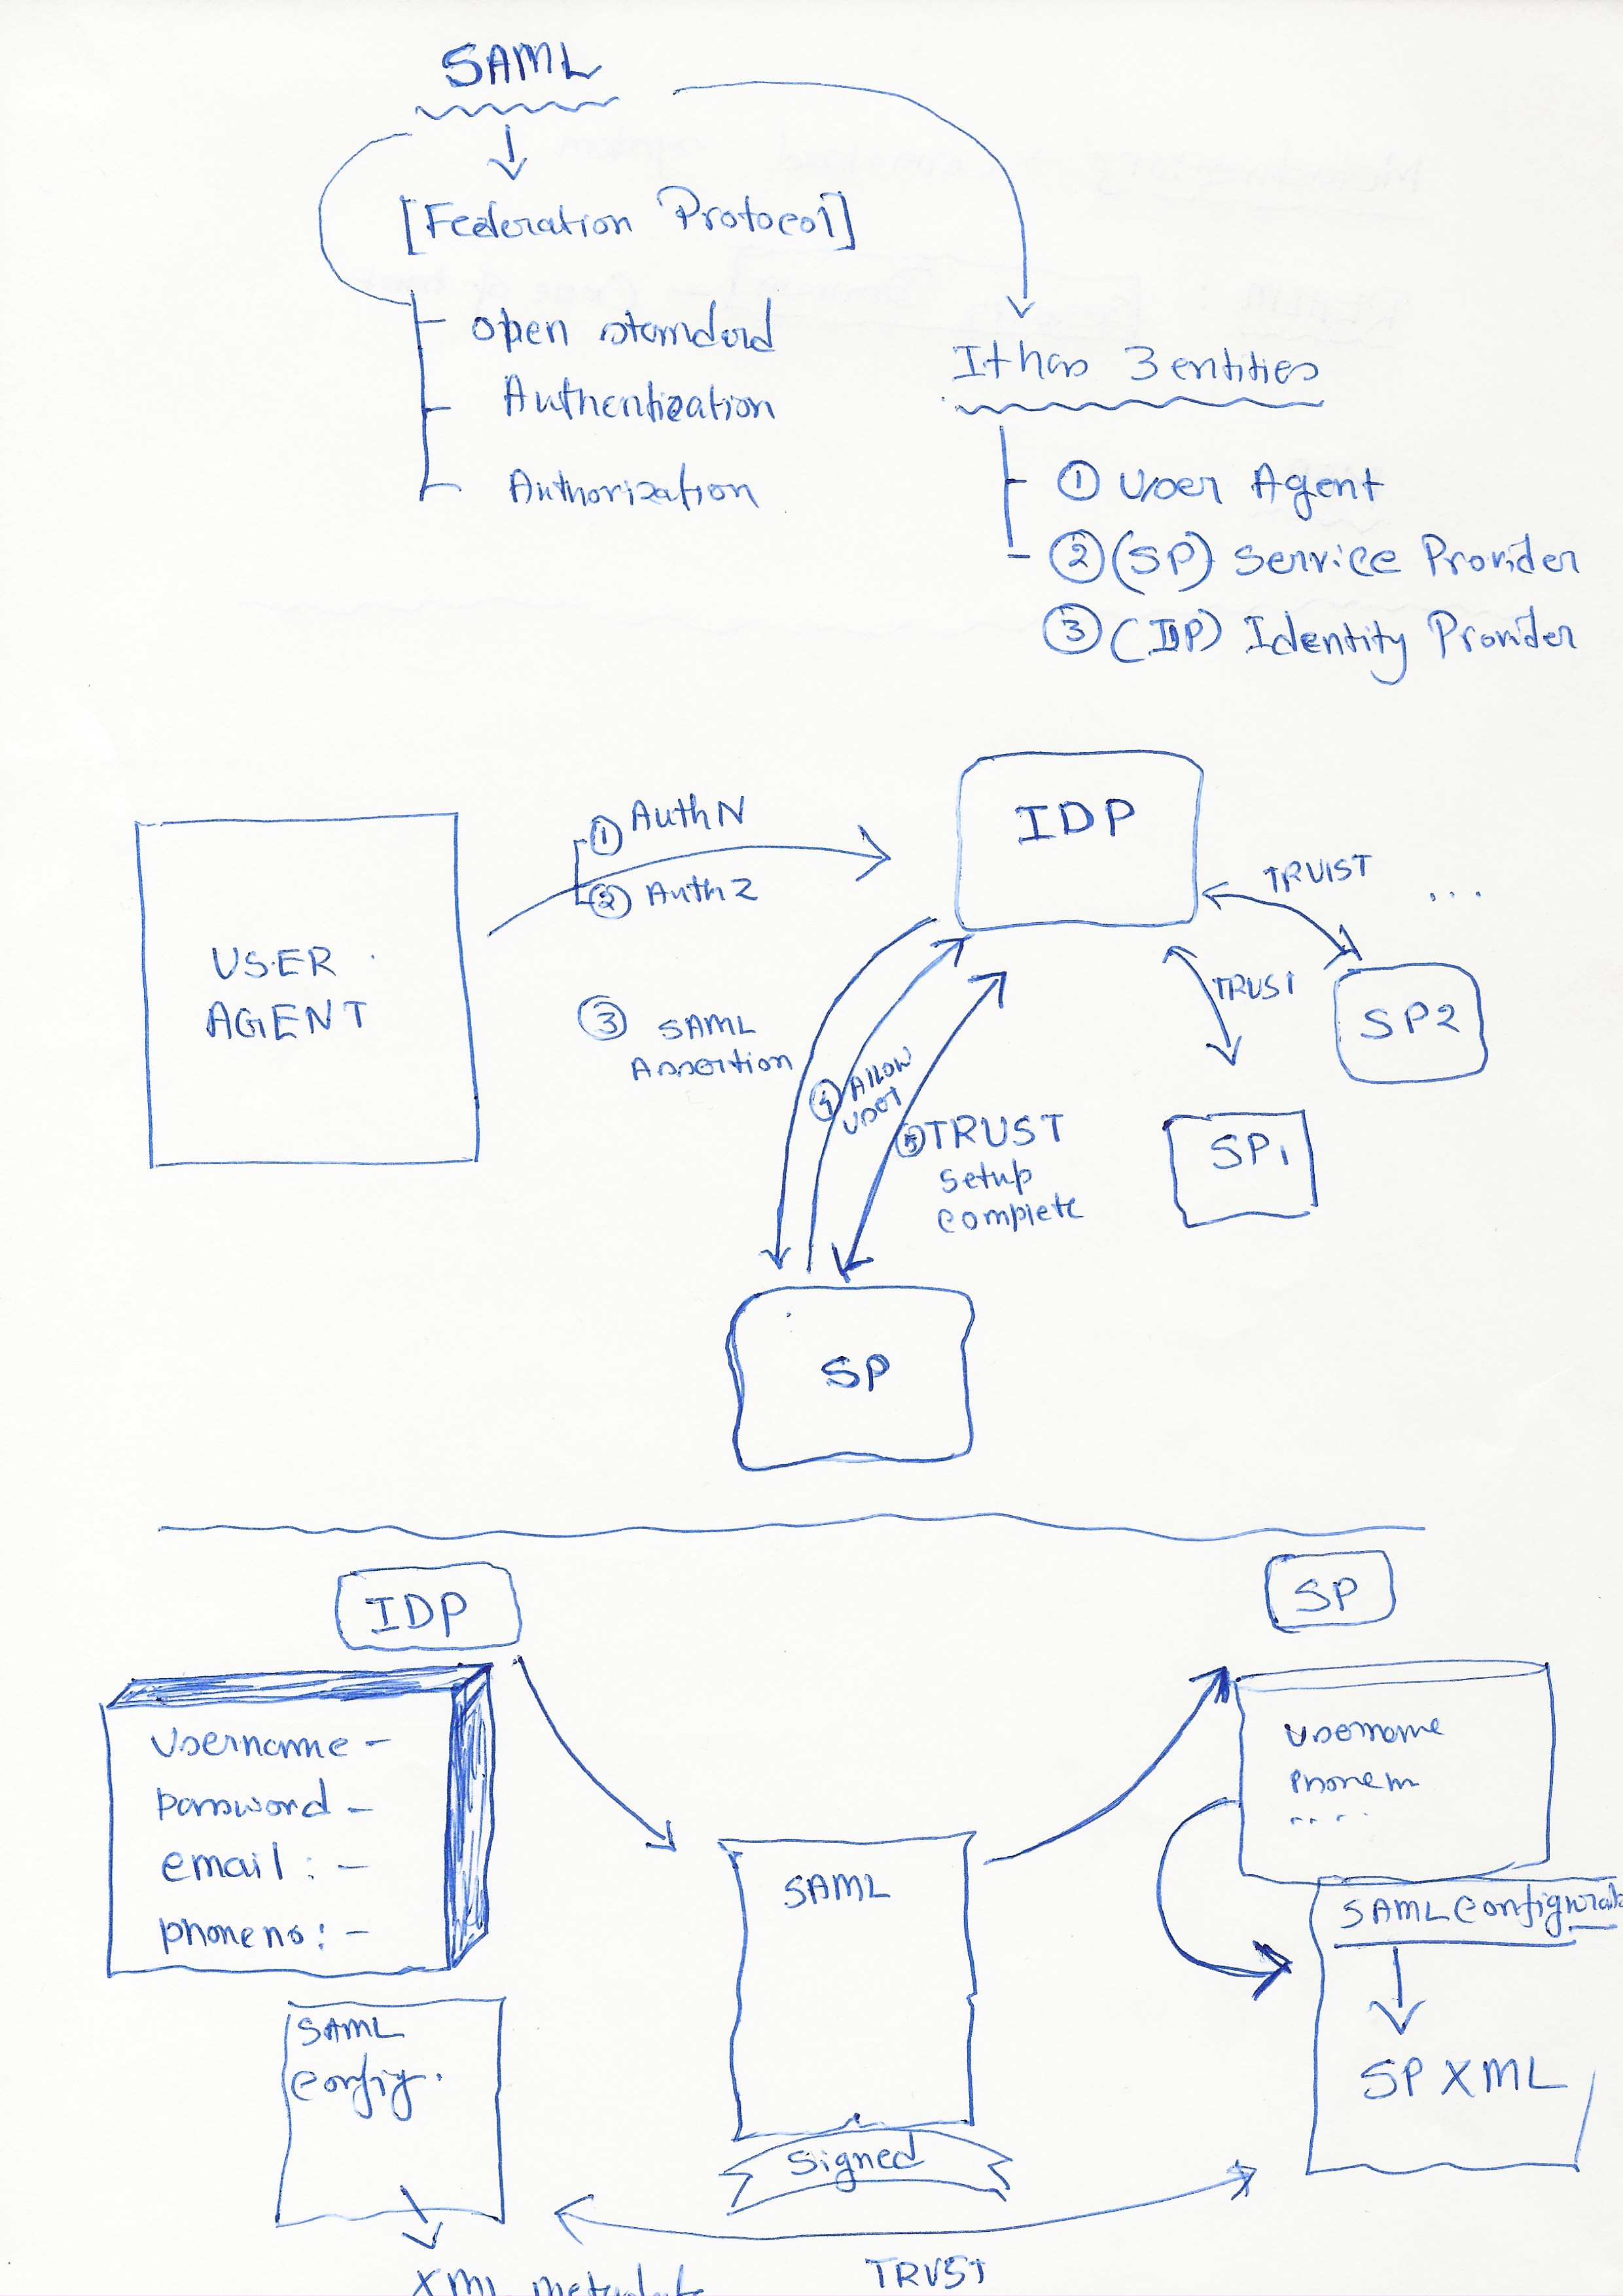 SAML
[Federation Protocol]
open standard
Authentication
Authorization
It has 3 entities
① User Agent
② (SP) Service Provider
③ (IDP) Identity Provider
USER
AGENT
① AuthN
② AuthZ
③ SAML
Assertion
④ ALLOW
⑤ TRUST
Setup
complete
IDP
TRUST
...
TRUST
SP2
SP1
SP
IDP
username -
password -
email : -
phone no : -
SAML
config.
XML metadata
SAML
Signed
TRUST
SP
username
....
SAML Configurat
SP XML